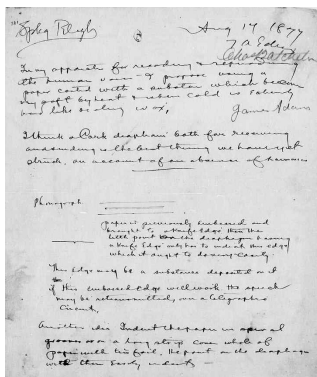 Aug 17 1877
T A Edison
Chas Batchelor
James Adams
In my apparatus for recording & reproducing
the human voice I propose using a
paper coated with a substance which becomes
very soft by heat & when cold is
hard like sealing wax,
I think a Cork diaphragm both for receiving
and sending is the best thing we have yet
struck, on account of an absence of harmonics
Phonograph
paper is previously embossed and
brought to a Knife Edge then the
little point on the diaphragm having
a Knife Edge only has to indent this edge
which it ought to do very easily.
This Edge may be a substance deposited on it
if this embossed Edge will work the speech
may be retransmitted, over a telegraphic
Circuit,
Another idea Indent the paper in
grooves or on a long strip cover whole of
paper with tin foil, the point on the diaphragm
will then easily indent